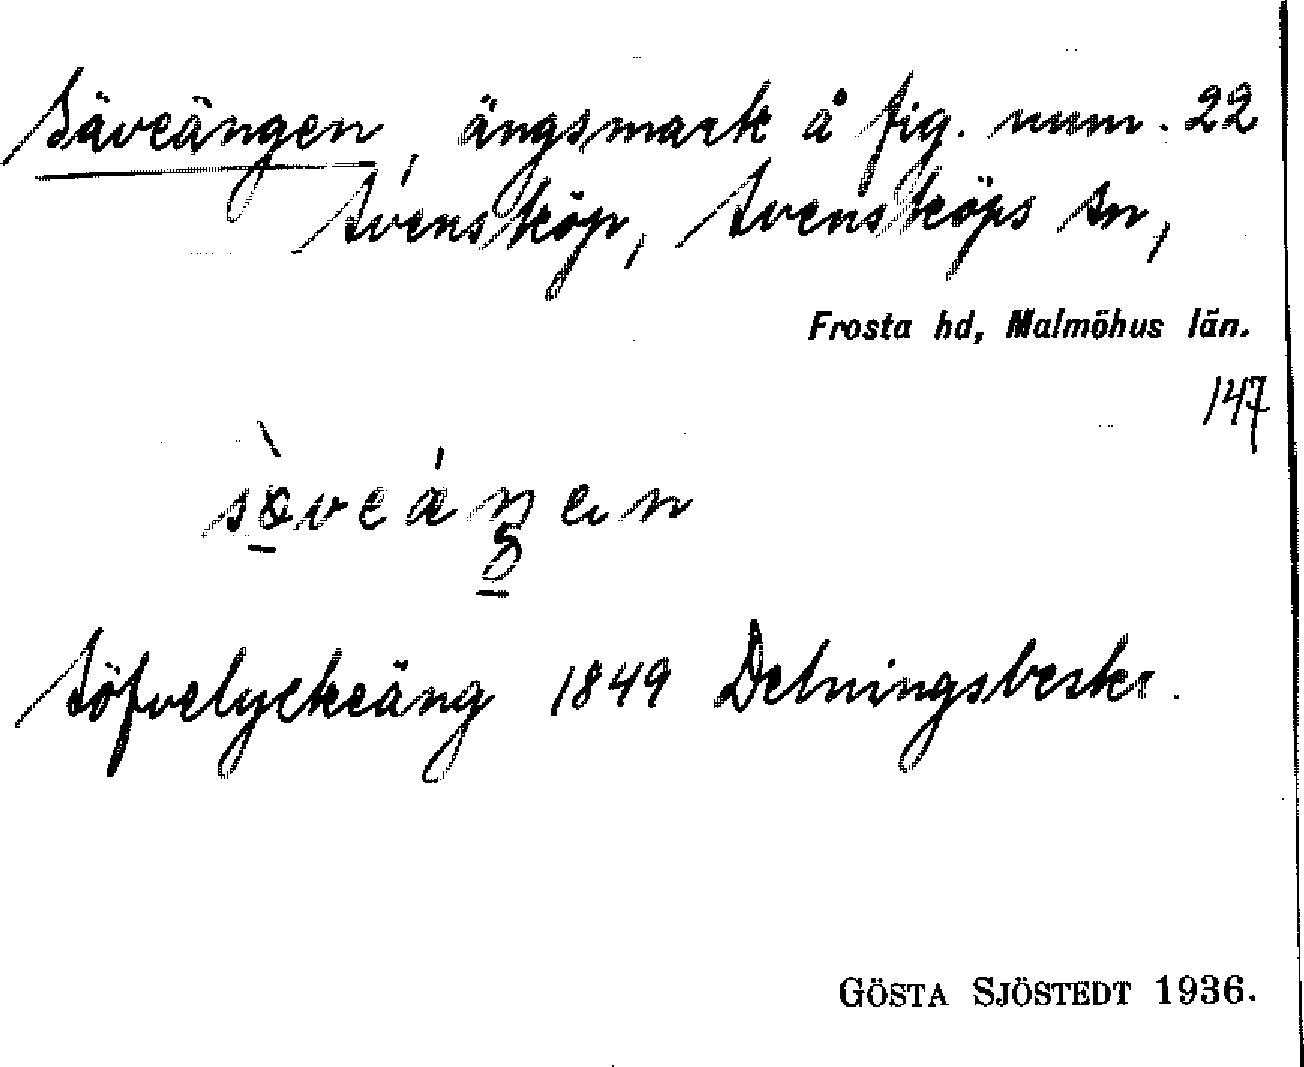 Säveängen, ängsmark å fig. num. 22
Svensköp, Svensköps sn,
Frosta hd, Malmöhus län.
147
Söfvelyckeäng 1849 Delningsbeskr.
GÖSTA SJÖSTEDT 1936.